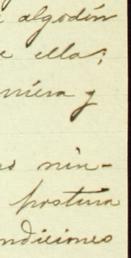 algodón
ella;
niera y
nin-
postura
ndiciones